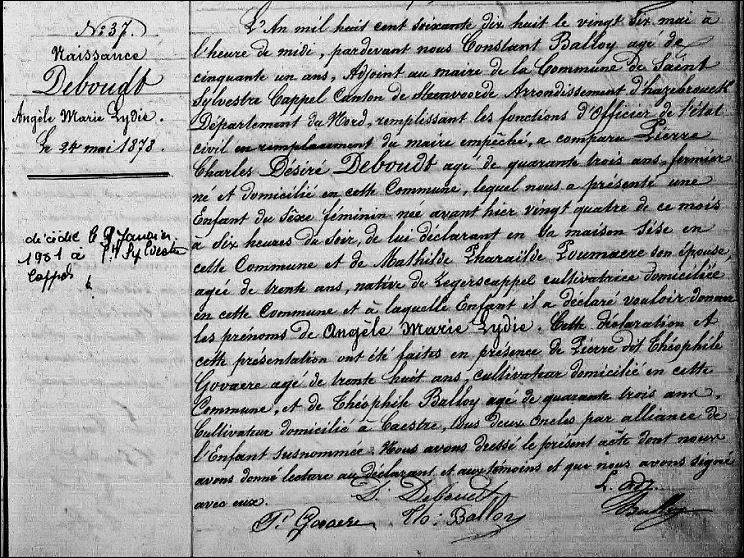 N° 37.
Naissance
Deboudt
Angèle Marie Lydie.
Le 24 mai 1878.
décédée le 9 Janvier
1951 à St Sylvestre
Cappel
L'An mil huit cent soixante dix huit le vingt six mai à
l'heure de midi, pardevant nous Constant Balloy agé de
cinquante un ans, Adjoint au maire de la Commune de Saint
Sylvestre Cappel Canton de Steenvoorde Arrondissement d'hazebrouck
Département du Nord, remplissant les fonctions d'Officier de l'état
civil en remplacement du maire empêché, a comparu Pierre
Charles Désiré Deboudt agé de quarante trois ans, fermier
né et domicilié en cette Commune, lequel nous a présenté une
Enfant du Sexe féminin née avant hier vingt quatre de ce mois
a six heures du soir, de lui déclarant en sa maison sise en
cette Commune et de Mathilde Pharaïlde Poumaere son épouse,
agée de trente ans, native de Zegerscappel cultivatrice domiciliée
en cette Commune et à laquelle Enfant il a déclaré vouloir donner
les prénoms de Angèle Marie Lydie. Cette déclaration et
cette présentation ont été faites en présence de Pierre dit Théophile
Govaere agé de trente huit ans, cultivateur domicilié en cette
Commune, et de Théophile Balloy agé de quarante trois ans,
Cultivateur domicilié à Caestre, tous deux oncles par alliance de
l'Enfant susnommée. Nous avons dressé le présent acte dont nous
avons donné lecture au déclarant et aux témoins et qui nous avons signé
avec eux.
D. Deboudt
P. Govaere Th. Balloy
L. adj.
Balloy